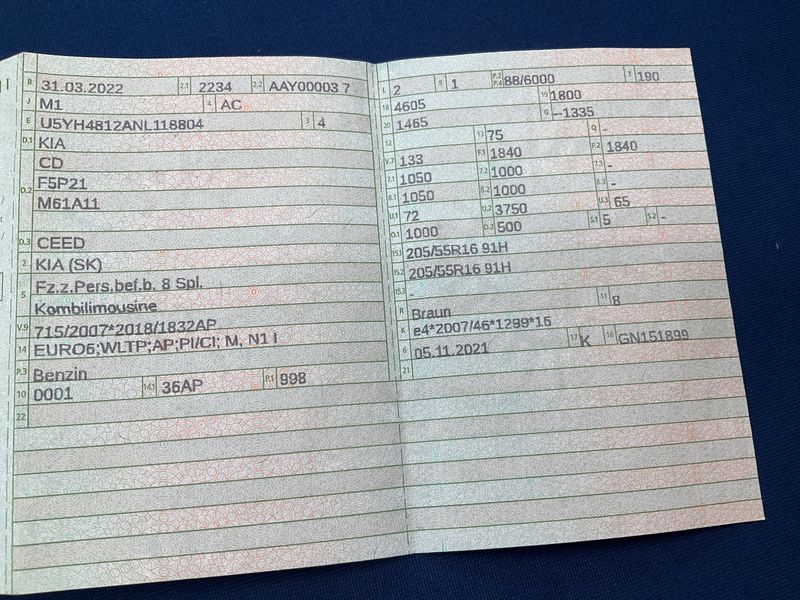 B 31.03.2022 2.1 2234 2.2 AAY00003 7
J M1 4 AC
E U5YH4812ANL118804 3 4
D.1 KIA
CD
D.2 F5P21
M61A11
D.3 CEED
2 KIA (SK)
5 Fz.z.Pers.bef.b. 8 Spl.
Kombilimousine
V.9 715/2007*2018/1832AP
14 EURO6;WLTP;AP;PI/CI; M, N1 I
P.3 Benzin
10 0001 14.1 36AP P.1 998
22
L 2 9 1 P.2 P.4 88/6000 T 190
18 4605 19 1800
20 1465 G --1335
12 13 75 Q -
V.7 133 F.1 1840 F.2 1840
7.1 1050 7.2 1000 7.3 -
8.1 1050 8.2 1000 8.3 -
U.1 72 U.2 3750 U.3 65
O.1 1000 O.2 500 S.1 5 S.2 -
15.1 205/55R16 91H
15.2 205/55R16 91H
15.3 -
R Braun 11 8
K e4*2007/46*1299*16
6 05.11.2021 17 K 16 GN151899
21